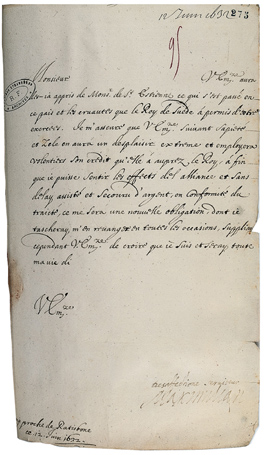 12 Juin 1632 273
95
Monsieur
V Em.ce aura
des-ià appris de Mons.r de S.t Estienne ce qui s'est passé en
ce païs et les cruautés que le Roy de Suede à permis d'estre
exercés. Je m'asseure que V Em.ce suivant sa pieté
et Zele en aura un desplaisir extreme et employera
volontiers son credit qu'Elle à auprez le Roy, à fin
que ie puisse sentir les effects del alliance et sans
delay assisté et secouru d'argent, en conformité du
traicté, ce me sera une nouvelle obligation, dont ie
tascheray m'en revanger en toutes les occasions, suppliant
cependant V Em.ce de croire que ie suis et seray, toute
ma vie de
V Em.ce
Maximilian
proche de Ratisbone
ce 12 Juin 1632.